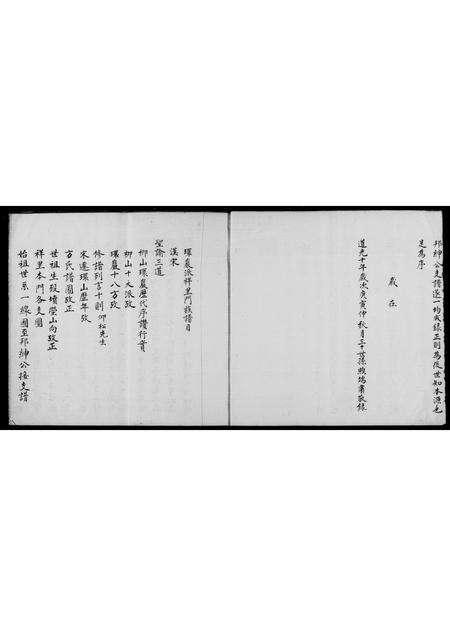 邦紳公支譜逐一均或錄正則為後世知本源也
是為序
歲在
道光十年歲次庚寅仲秋月三十世孫煥鴻肅敬錄
環巖派祥里門族譜目
漢宋
聖諭三道
柳山環巖歷代序讚行實
柳山十大派攷
環巖十八方攷
修譜列言十則 仰松先生
宋遷環山歷年攷
方氏譜圖攷正
世祖生歿墳塋山向攷正
祥里本門各支圖
始祖世系一線圖至邦紳公接支譜